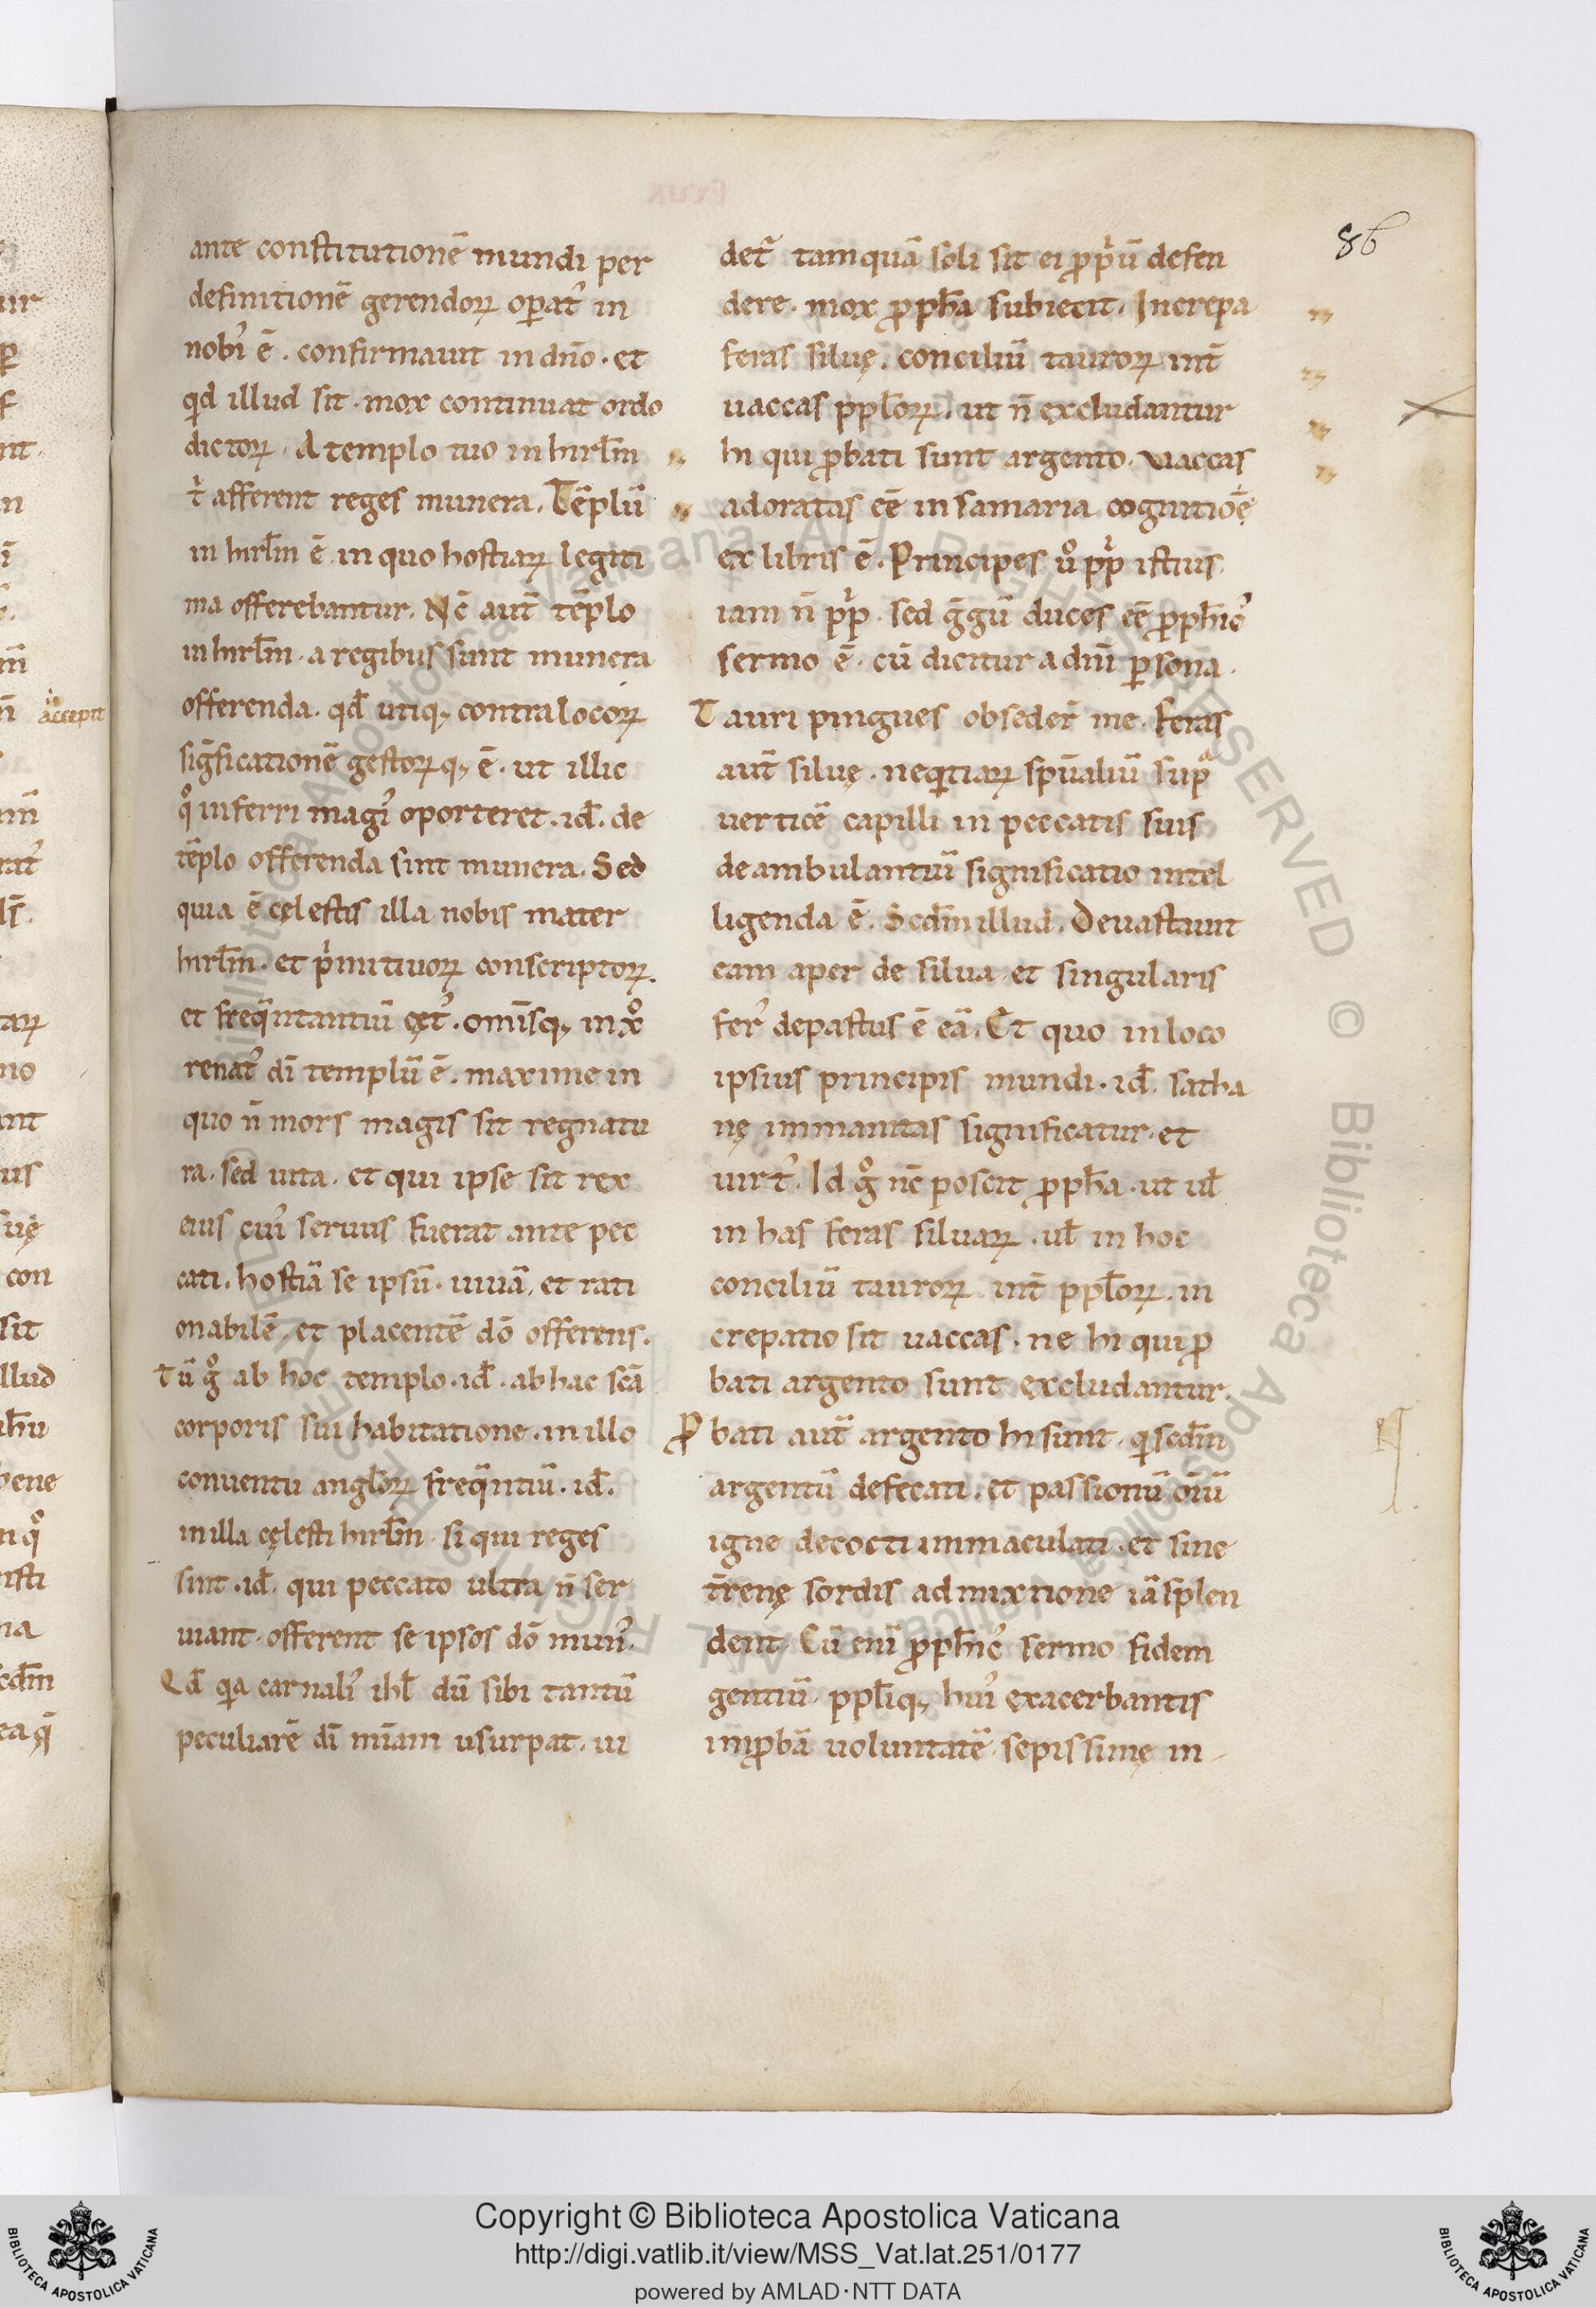 86
ante constitutionē mundi per
definitionē gerendoꝝ oꝑat᾽ in
nobı᾽ ē. confirmauit in dn̄o. et
qd illud sit. mox continuat ordo
dictoꝝ. A templo tuo in hirlm̄
t̄ afferent reges munera. Tēplū
in hirlm̄ ē. in quo hostiaꝝ legiti
ma offerebantur. Nc̄ aut̄ tēplo
in hirlm̄. a regibus sunt munera
offerenda. qd̄ utiq; contra locoꝝ
siḡficationē gestoꝝq; ē. ut illic
qͦ inferri magı᾽ oporteret. id̄. de
tēplo offerenda sint munera. Sed
quia ē cęlestis illa nobis mater
hirlm̄. et pⁱmitiuoꝝ conscriptoꝝ.
et freq̄ntantiū cęt᾽. omīsq; in xͦ
renat᾽ dī templū ē. maxime in
quo n̄ mors magis sit regnatu
ra. sed uita. et qui ipse sit rex
eius cui᾽ seruus fuerat ante pec
cati. hostiā se ipsū. uiuā. et rati
onabilē. et placentē dō offerens.
Tū gͦ ab hoc templo. id̄. ab hac scā
corporis sui habitatione. in illo
conuentu angl̄oꝝ freq̄ntiū. id̄.
in illa cęlesti hirlm̄. si qui reges
sint. id̄. qui peccato ultra n̄ ser
uiant. offerent se ipsos dō mun᾽.
Qd̄ qa carnalı᾽ ihl̄ dū sibi tantū
peculiarē dī mīam usurpat. ui
det᾽ tamquā soli sit ei ꝓpⁱū defen
dere. mox ꝓph̄a subiecit. Increpa
feras siluę. conciliū tauroꝝ int̄
uaccas ppl̄oꝝ. ut n̄ excludantur
hi qui ꝓbati sunt argento. uaccas
adoratas eē in samaria cognitiōē
ex libris ē. Principes uͦ pⁱp istius
iam n̄ pⁱp. sed ḡgū duces eē ꝓph̄ic᾽
sermo ē. cū dicitur a dn̄i ꝑsona.
Tauri pingues obseder̄ me. feras
aut̄ siluę. neqⁱtiaꝝ spūaliū supᵃ
uerticē capilli in peccatis suis
deambulantiū significatio intel
ligenda ē. Scdm̄ illud. Deuastauit
eam aper de silua et singularis
fer᾽ depastus ē eā. Et quo in loco
ipsius principis mundi. id̄. satha
nę immanitas significatur. et
uirt᾽. Id gͦ nc̄ poscit ꝓph̄a. ut ul̄
in has feras siluaꝝ. ul̄ in hoc
conciliū tauroꝝ. int̄ ppl̄oꝝ. in
crepatio sit uaccas. ne hi qui ꝓ
bati argento sunt excludantur.
Ꝓbati aut̄ argento hi sunt. qⁱ scdm̄
argentū defecati. et passionū oīū
igne decocti immaculati. et sine
t̄renę sordis admixtione iā splen
dent. Cū enī ꝓph̄ic᾽ sermo fidem
gentiū. ppl̄iq; hui᾽ exacerbantis
imꝓbā uoluntatē. sepissimę in
accepit
Copyright © Biblioteca Apostolica Vaticana
http://digi.vatlib.it/view/MSS_Vat.lat.251/0177
powered by AMLAD·NTT DATA